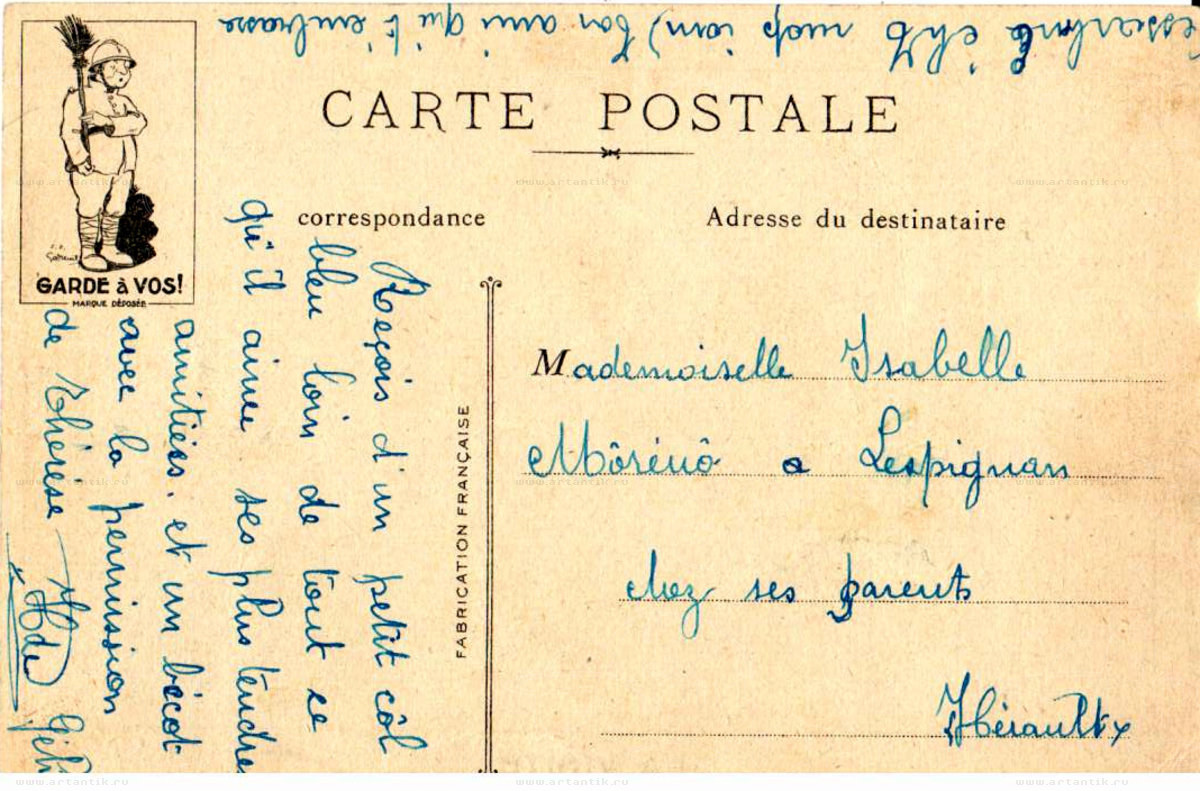 essemble chz mop iom) ton ami qui t'embrasse
CARTE POSTALE
correspondance
Adresse du destinataire
GARDE à VOS!
MARQUE DÉPOSÉE
Reçois d'un petit côl
bleu loin de tout ce
qu'il aime ses plus tendre
amitiés. et un bécot
avec la permission
de Thérèse
FABRICATION FRANÇAISE
Mademoiselle Isabelle
Môrénô a Lespignan
chez ses parents
Hérault
www.artantik.ru